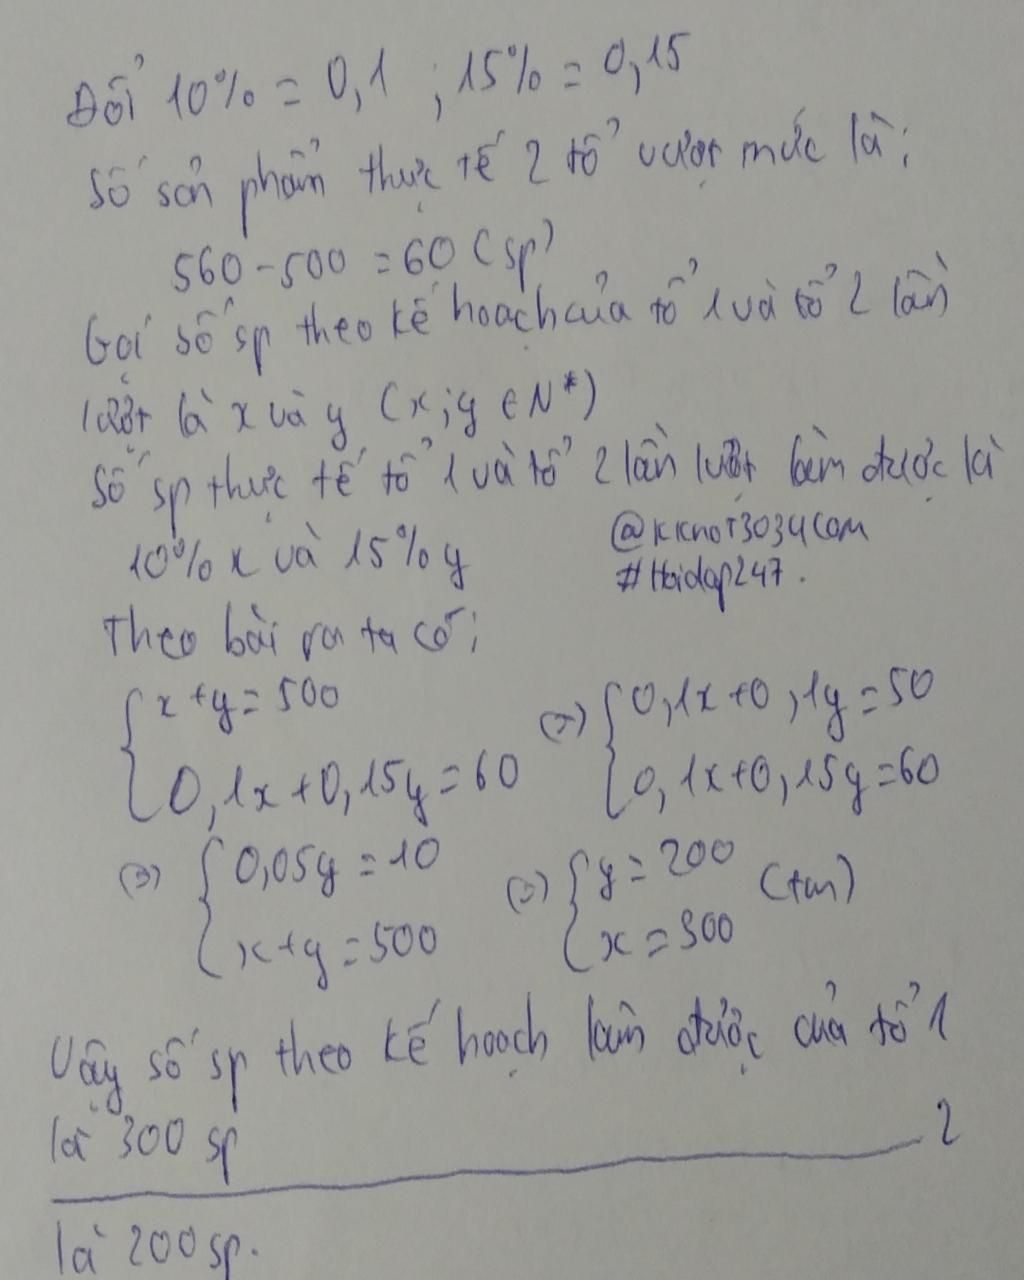 Đổi 10% = 0,1 ; 15% = 0,15
Số sản phẩm thực tế 2 tổ vượt mức là:
560 - 500 = 60 (sp)
Gọi số sp theo kế hoạch của tổ 1 và tổ 2 lần
lượt là x và y (x;y ∈ N*)
Số sp thực tế tổ 1 và tổ 2 lần lượt làm được là
10% x và 15% y
@kicnot3034com
#Hoidap247.
Theo bài ra ta có:
{ x + y = 500
0,1x + 0,15y = 60
(=) { 0,1x + 0,1y = 50
0,1x + 0,15y = 60
(=) { 0,05y = 10
x + y = 500
(=) { y = 200 (tm)
x = 300
Vậy số sp theo kế hoạch làm được của tổ 1
là 300 sp
2
là 200 sp.